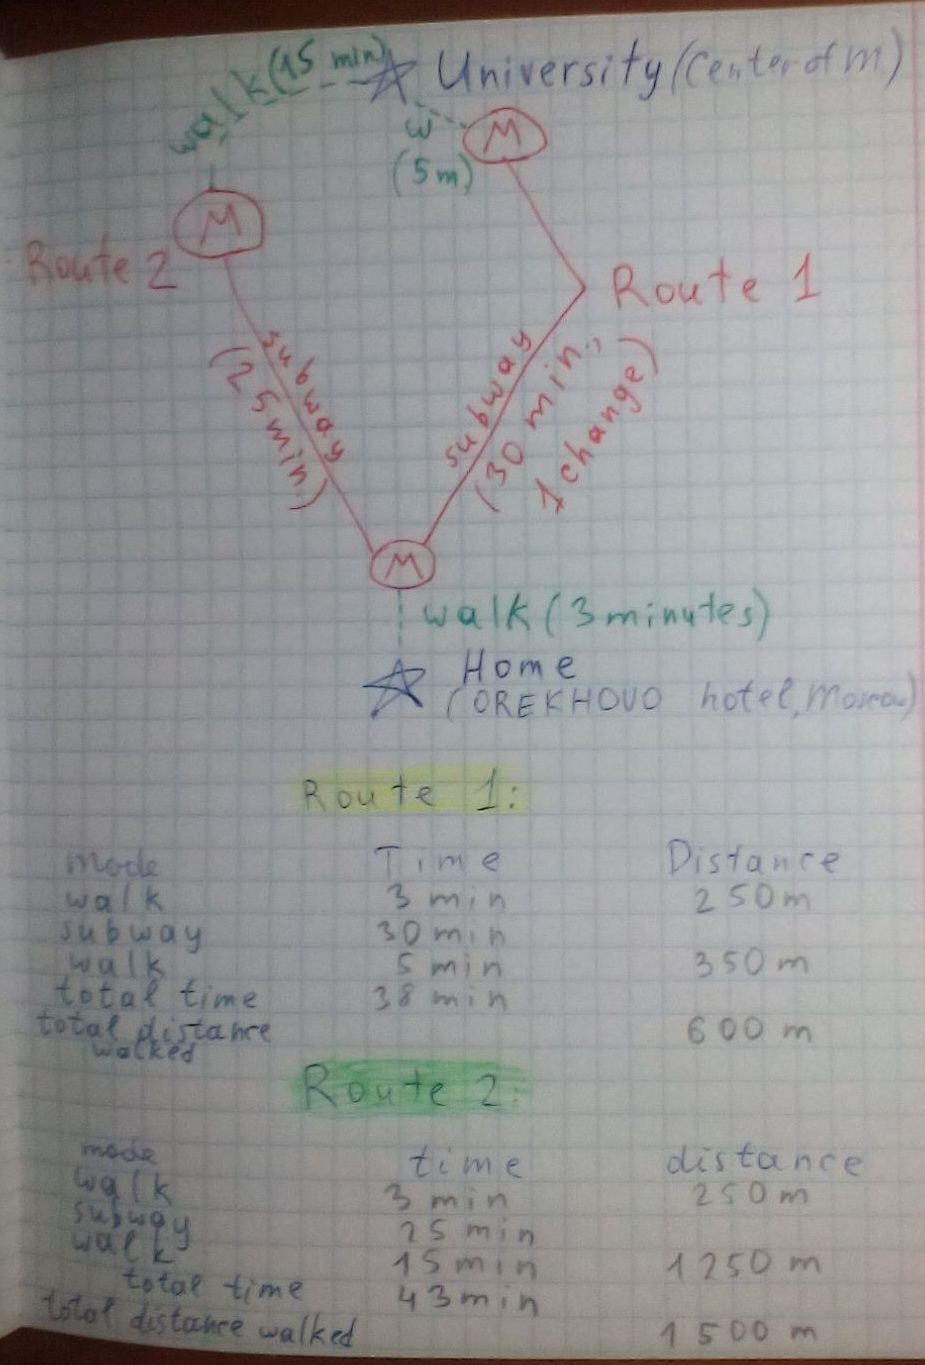 walk (15 min)
University (Center of M.)
W
(5m)
M
M
Route 2
Route 1
subway
(25 min)
subway
(30 min,
1 change)
M
walk (3 minutes)
Home
(OREKHOVO hotel, Moscow)
Route 1:
mode Time Distance
walk 3 min 250 m
subway 30 min
walk 5 min 350 m
total time 38 min
total distance 600 m
walked
Route 2:
mode time distance
walk 3 min 250 m
subway 25 min
walk 15 min 1250 m
total time 43 min
total distance walked 1500 m